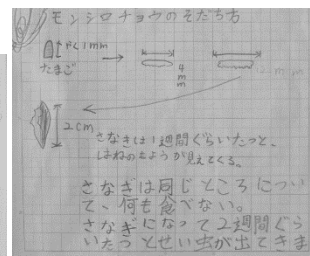 モンシロチョウのそだち方
やく1mm
4mm
たまご
2cm
さなぎは1週間ぐらいたつと、
はねのもようが見えてくる。
さなぎは同じところについ
て、何も食べない。
さなぎになって2週間ぐら
いたつとせい虫が出てきま